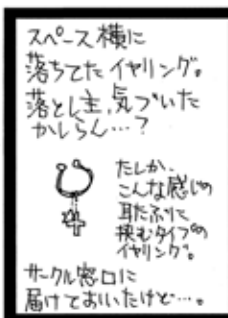 スペース横に
落ちてたイヤリング。
落とし主、気づいた
かしらん…？
たしか、
こんな感じの
耳たぶに
挟むタイプの
イヤリング。
サークル窓口に
届けておいたけど…。